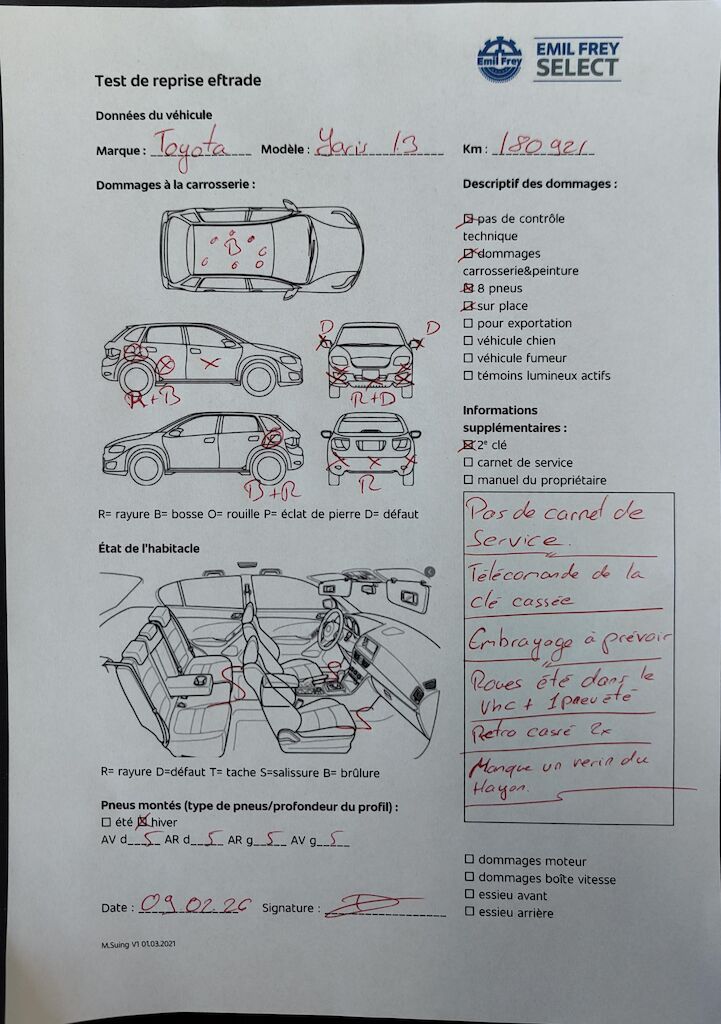 Emil Frey
EMIL FREY
SELECT
Test de reprise eftrade
Données du véhicule
Marque : Toyota Modèle : Yaris 1.3 Km : 180921
Dommages à la carrosserie :
B
D D
R+B R+D
B+R R
R= rayure B= bosse O= rouille P= éclat de pierre D= défaut
État de l'habitacle
S S S
R= rayure D=défaut T= tache S=salissure B= brûlure
Pneus montés (type de pneus/profondeur du profil) :
☐ été ☒ hiver
AV d 5 AR d 5 AR g 5 AV g 5
Date : 09.02.26 Signature :
M.Suing V1 01.03.2021
Descriptif des dommages :
☒ pas de contrôle
technique
☒ dommages
carrosserie&peinture
☒ 8 pneus
☒ sur place
☐ pour exportation
☐ véhicule chien
☐ véhicule fumeur
☐ témoins lumineux actifs
Informations
supplémentaires :
☒ 2e clé
☐ carnet de service
☐ manuel du propriétaire
Pas de carnet de
Service.
Télécomande de la
clé cassée
Embrayage à prévoir
Roues été dans le
vhc + 1 pneu été
Retro cassé 2x
Manque un verin du
Hayon.
☐ dommages moteur
☐ dommages boîte vitesse
☐ essieu avant
☐ essieu arrière